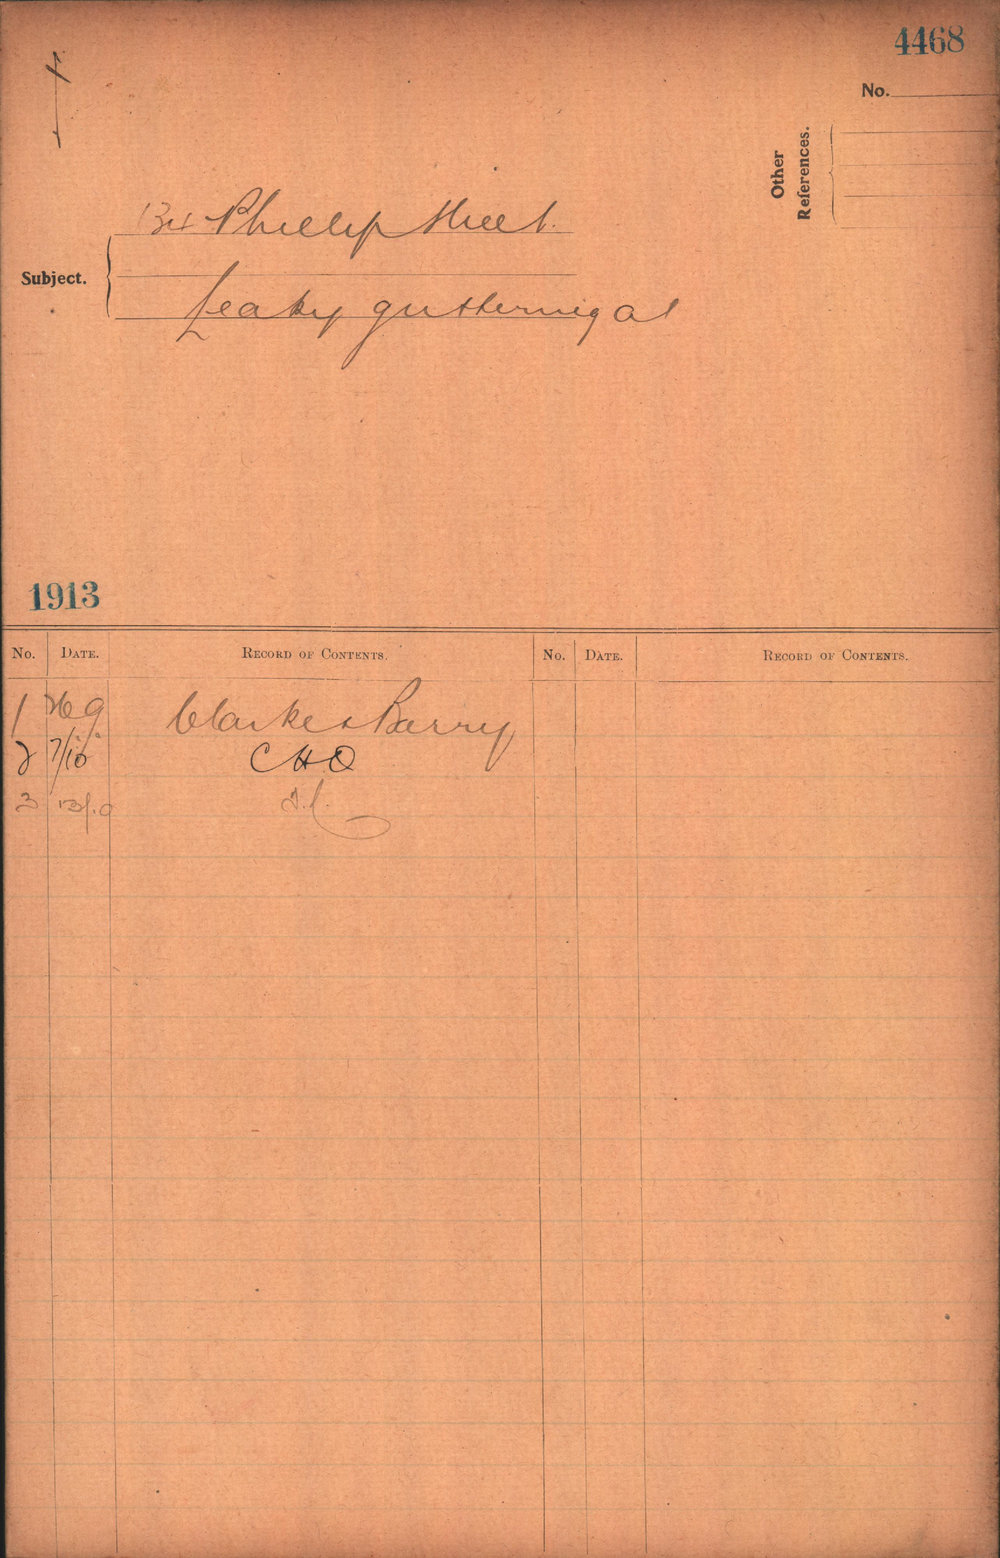 4468
No.
Other References.
134 Phillip Street.
Subject.
Leaky guttering at
1913
No. Date. Record of Contents. No. Date. Record of Contents.
1 26.9 Clarke & Barry
2 7/10 CHO
3 13/10